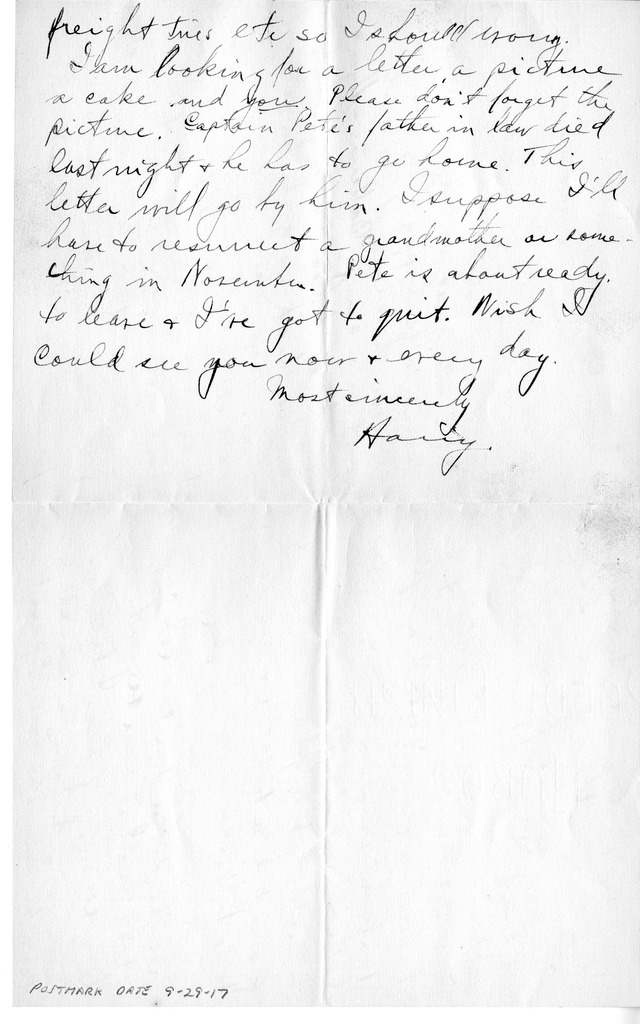 freight tires etc so I should worry.
I am looking for a letter, a picture
a cake and you. Please don't forget the
picture. Captain Pete's father in law died
last night & he has to go home. This
letter will go by him. I suppose I'll
have to resurrect a grandmother or some-
thing in November. Pete is about ready.
to leave & I've got to quit. Wish I
could see you now & every day.
Most sincerely
Harry.
POSTMARK DATE 9-29-17